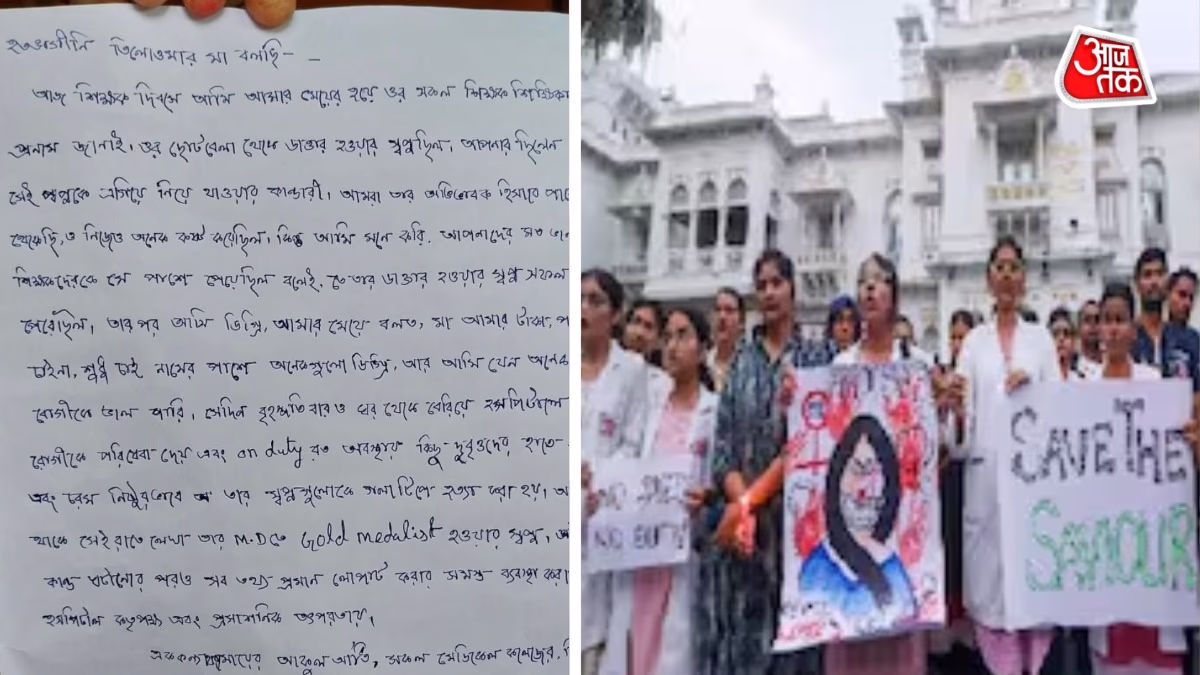 হতভাগীনি তিলোওমার মা বলছি - -
আজ শিক্ষক দিবসে আমি আমার মেয়ের হয়ে ওর সকল শিক্ষক
প্রনাম জানাই। ওর ছোটবেলা থেকে ডাক্তার হওয়ার স্বপ্ন ছিল। আপনারা ছিলেন
সেই স্বপ্নকে এগিয়ে নিয়ে যাওয়ার কান্ডারী। আমরা তার অভিভাবক হিসাবে
থেকেছি, ও নিজেও অনেক কষ্ট করেছিল, কিন্তু আমি মনে করি. আপনাদের মত
শিক্ষকদেরকে সে পাশে পেয়েছিল বলেই, তার ডাক্তার হওয়ার স্বপ্ন সফল
পেরেছিল। তারপর আমি আমার মেয়ে বলত, মা আমার টাকা
চাইনা, শুধু চাই নামের পাশে অনেকগুলো ডিগ্রি, আর আমি যেন অনেক
রোগীকে ভাল পারি, সেদিন বৃহস্পতিবারও ঘর থেকে বেরিয়ে হসপিটালে
রোগীকে পরিষেবা দেয় এবং on duty রত অবস্থায় কিছু দুর্বৃত্তদের হাতে
এবং চরম নিষ্ঠুরভাবে তার স্বপ্নগুলোকে গলা টিপে হত্যা করা হয়,
থাকে সেই রাতে লেখা তার M.D তে Gold medalist হওয়ার স্বপ্ন,
কান্ড ঘটানোর পরও সব তথ্য প্রমান লোপাট করার সমস্ত ব্যবস্থা করা
হসপিটাল কতৃপক্ষ এবং প্রসাশনিক তৎপরতায়।
মায়ের আকুল আর্তি, সকল মেডিকেল কলেজের
आज
तक
NO SAFETY
NO DUTY
SAVE THE
SAVIOUR